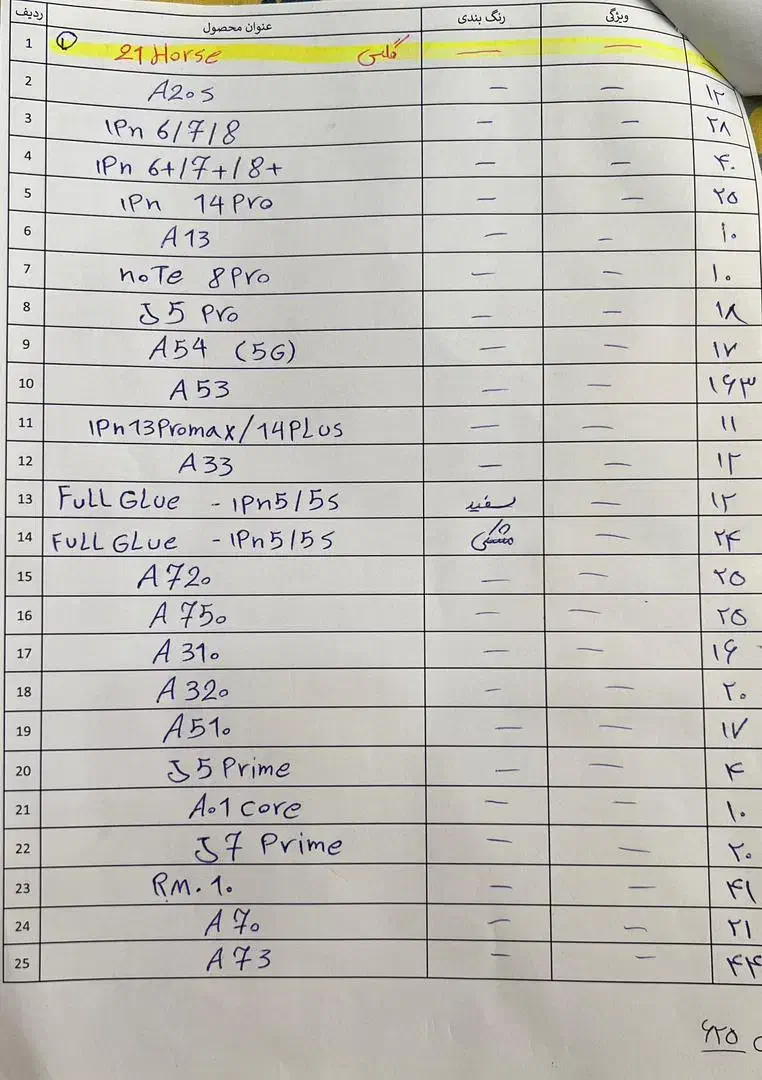 ردیف عنوان محصول رنگ بندی ویژگی
1 ① 21 Horse گلس — —
2 A20s — — ۱۲
3 IPn 6/7/8 — — ۲۸
4 IPn 6+/7+/8+ — — ۴۰
5 IPn 14 Pro — — ۲۵
6 A13 — — ۱۰
7 noTe 8Pro — — ۱۰
8 J5 Pro — — ۱۸
9 A54 (5G) — — ۱۷
10 A53 — — ۱۶۳
11 IPn13Promax/14PLus — — ۱۱
12 A33 — — ۱۲
13 FuLL GLue - IPn5/5s سفید — ۱۲
14 FuLL GLue - IPn5/5s مشکی — ۲۴
15 A720 — — ۲۵
16 A750 — — ۲۵
17 A310 — — ۱۶
18 A320 — — ۲۰
19 A510 — — ۱۷
20 J5 Prime — — ۴
21 A01 core — — ۱۰
22 J7 Prime — — ۲۰
23 RM.10 — — ۴۱
24 A70 — — ۲۱
25 A73 — — ۴۴
۶۲۵